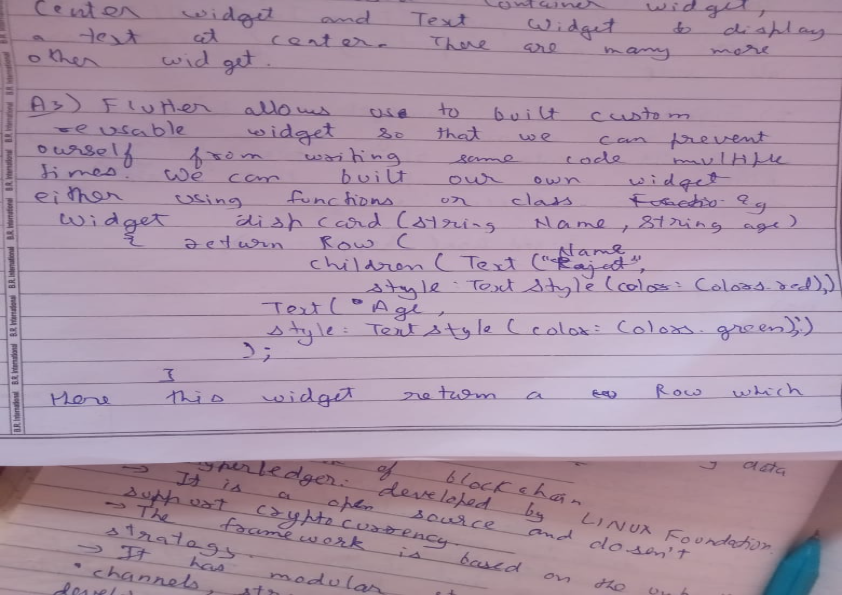 Container widget,
Center widget and Text Widget to display
a text at center. There are many more
other widget.
A3) Flutter allows use to built custom
reusable widget so that we can prevent
ourself from writing same code multiple
times. We can built our own widget
either using functions or class Eg
Widget dish card (string Name, String age)
{ return Row (
Name
children ( Text ("Rajat",
style: Text style (color: Colors.red),)
Text ( Age,
style: Text style ( color: Colors. green);)
);
}
Here this widget return a Row which
B.R. International B.R. International B.R. International B.R. International B.R. International
data
of blockchain
Hyperledger. developed by LINUX Foundation
→ It is a open source and dosen't
support cryptocurrency.
→ The framework is based on the
strategy.
→ It has modular
• channels,